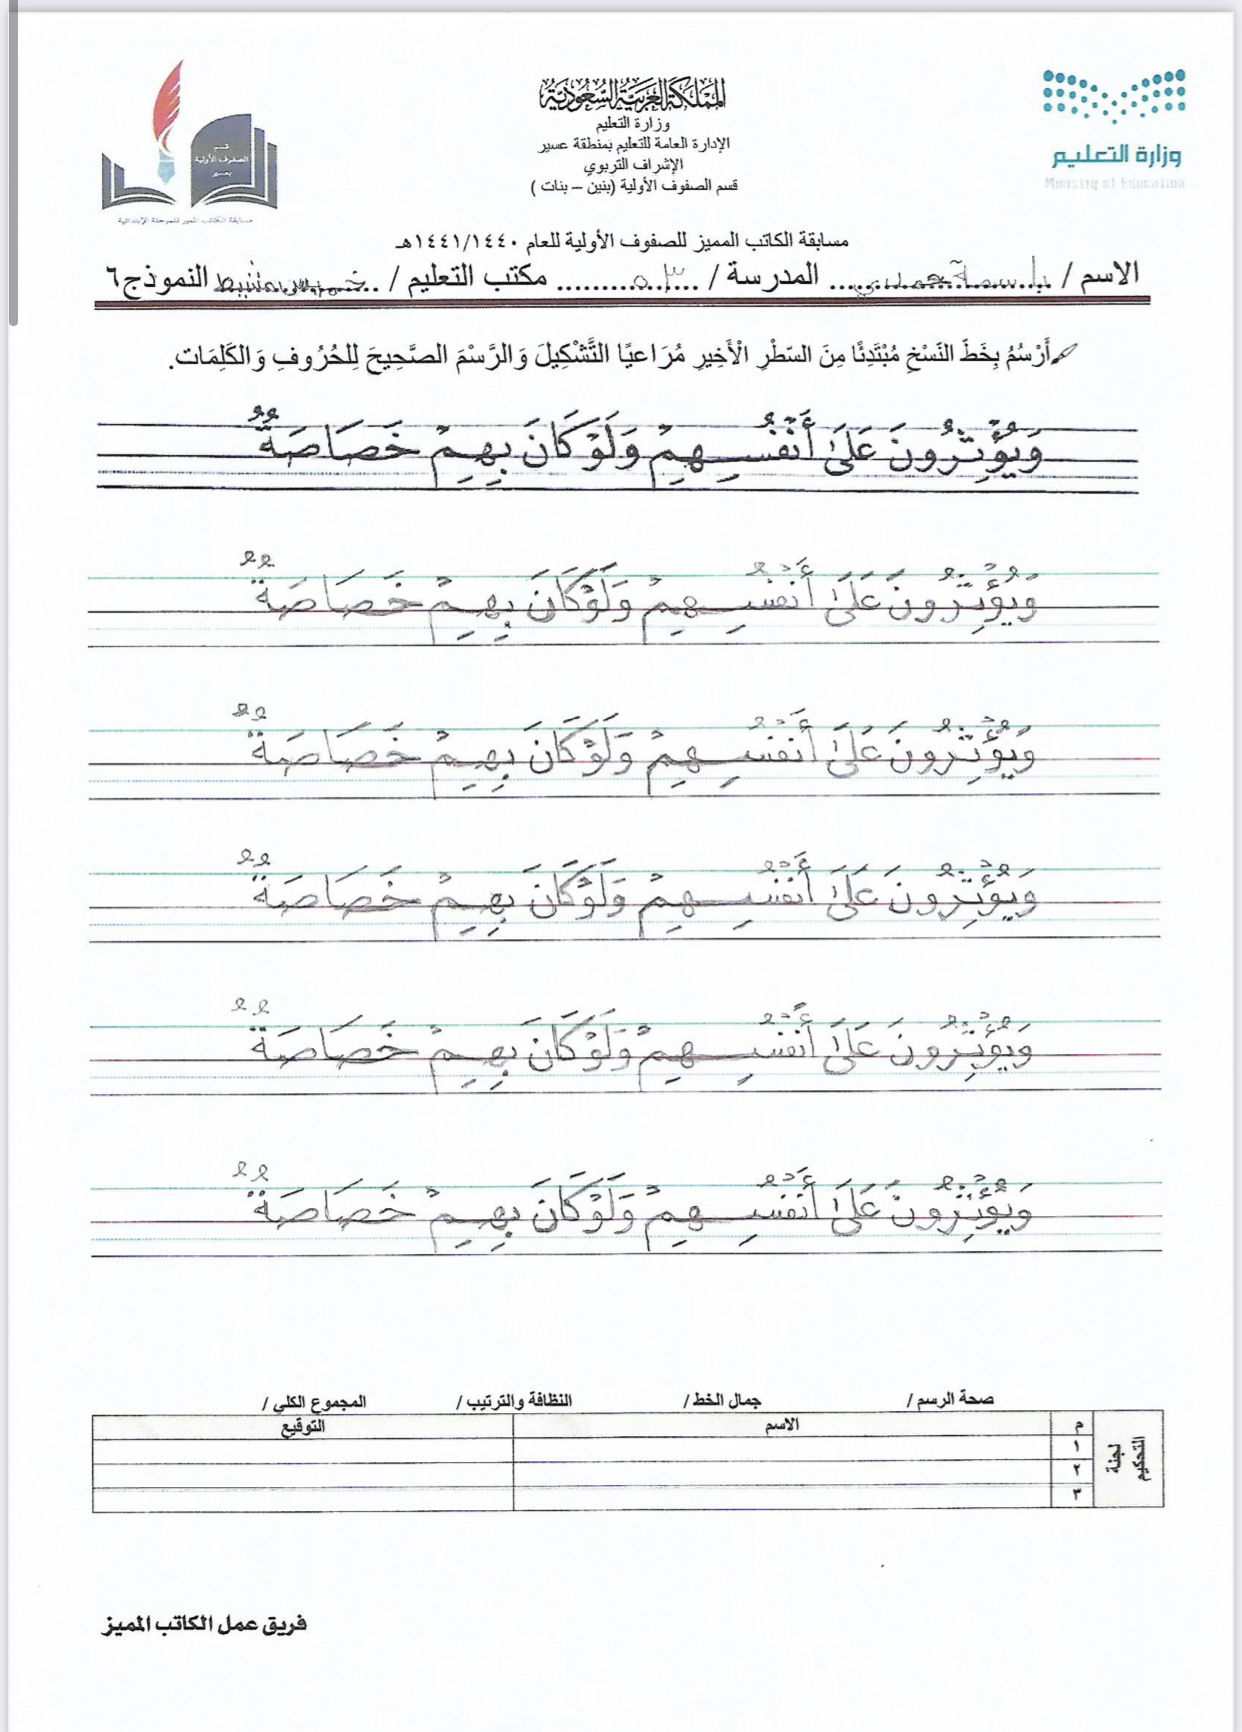 المملكة العربية السعودية
وزارة التعليم
الإدارة العامة للتعليم بمنطقة عسير
الإشراف التربوي
قسم الصفوف الأولية (بنين – بنات )
وزارة التعليم
Ministry of Education
قسم
الصفوف الأولية
بعسير
مسابقة الكاتب المميز للمرحلة الإبتدائية
مسابقة الكاتب المميز للصفوف الأولية للعام ١٤٤١/١٤٤٠هـ
الاسم / المدرسة / مكتب التعليم / خميس مشيط النموذج٦
أَرْسُمُ بِخَطِّ النَّسْخِ مُبْتَدِئًا مِنَ السَّطْرِ الْأَخِيرِ مُرَاعِيًا التَّشْكِيلَ وَالرَّسْمَ الصَّحِيحَ لِلحُرُوفِ وَالكَلِمَات.
وَيُؤْثِرُونَ عَلَىٰ أَنْفُسِهِمْ وَلَوْ كَانَ بِهِمْ خَصَاصَةٌ
وَيُؤْثِرُونَ عَلَىٰ أَنْفُسِهِمْ وَلَوْ كَانَ بِهِمْ خَصَاصَةٌ
وَيُؤْثِرُونَ عَلَىٰ أَنْفُسِهِمْ وَلَوْ كَانَ بِهِمْ خَصَاصَةٌ
وَيُؤْثِرُونَ عَلَىٰ أَنْفُسِهِمْ وَلَوْ كَانَ بِهِمْ خَصَاصَةٌ
وَيُؤْثِرُونَ عَلَىٰ أَنْفُسِهِمْ وَلَوْ كَانَ بِهِمْ خَصَاصَةٌ
وَيُؤْثِرُونَ عَلَىٰ أَنْفُسِهِمْ وَلَوْ كَانَ بِهِمْ خَصَاصَةٌ
صحة الرسم / جمال الخط / النظافة والترتيب / المجموع الكلي /
لجنة التحكيم
م الاسم التوقيع
١
٢
٣
فريق عمل الكاتب المميز